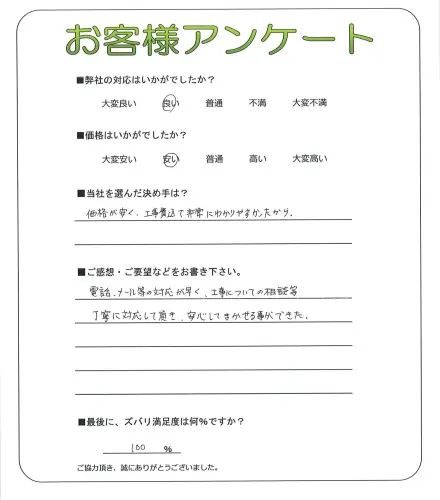 お客様アンケート
■弊社の対応はいかがでしたか？
大変良い 良い 普通 不満 大変不満
■価格はいかがでしたか？
大変安い 安い 普通 高い 大変高い
■当社を選んだ決め手は？
価格が安く、工事費込で非常にわかりやすかったから。
■ご感想・ご要望などをお書き下さい。
電話、メール等の対応が早く、工事についての相談等
丁寧に対応して頂き、安心してまかせる事ができた。
■最後に、ズバリ満足度は何％ですか？
100 ％
ご協力頂き、誠にありがとうございました。